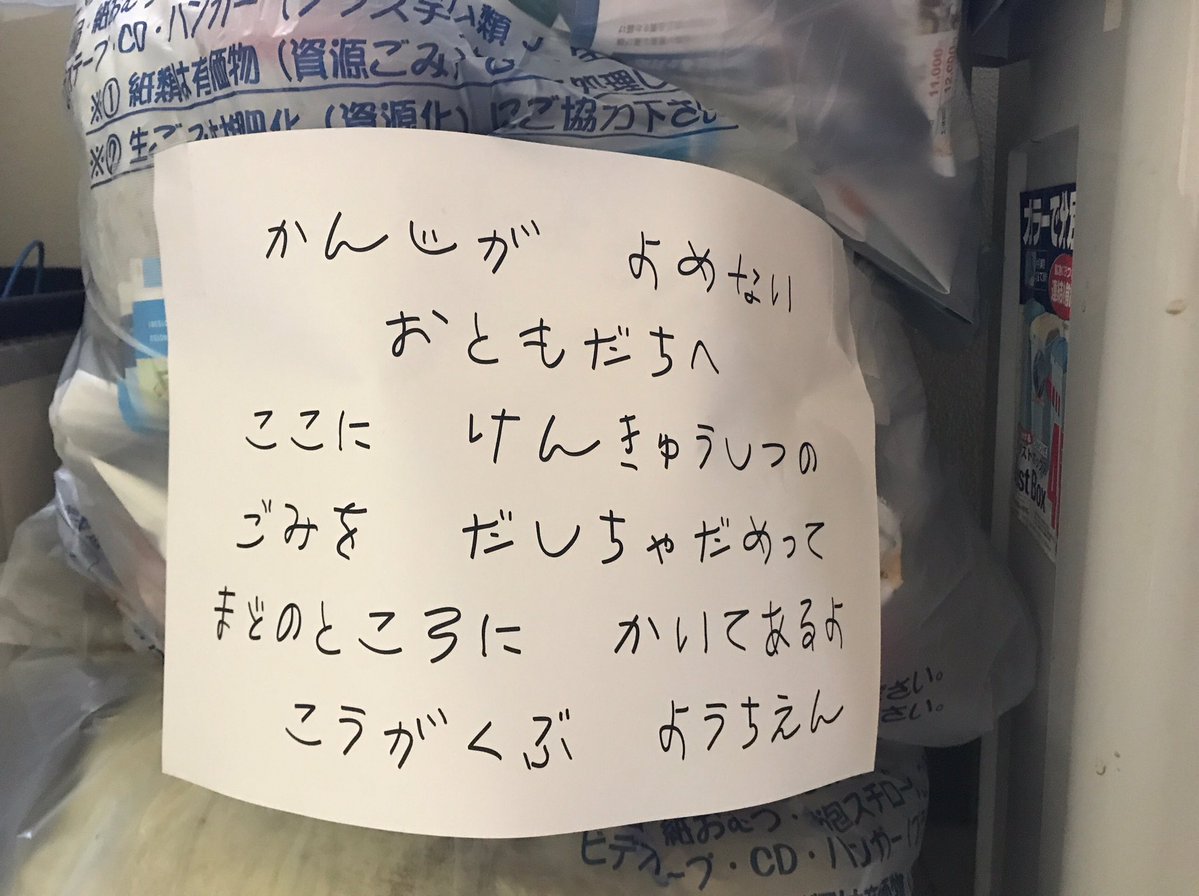 テープ・CD・ハンガー(プラスチック類
※① 紙類は有価物(資源ごみ)
処理し
にご協力下さい
11,000
12,000
カラーで分
かんじが よめない
おともだちへ
ここに けんきゅうしつの
ごみを だしちゃだめって
まどのところに かいてあるよ
こうがくぶ ようちえん
st Box
さい。
さい。
紙おむつ・発泡スチロー
ビデオ
ープ・CD・ハンガー(プ